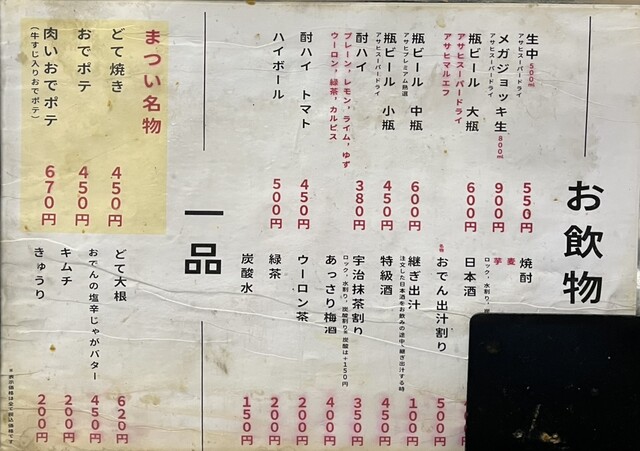 お飲物
生中 500ml 550円
アサヒスーパードライ
メガジョッキ生 800ml 900円
アサヒスーパードライ
瓶ビール 大瓶 600円
アサヒスーパードライ
アサヒマルエフ
瓶ビール 中瓶 600円
アサヒプレミアム熟撰
瓶ビール 小瓶 450円
アサヒスーパードライ
酎ハイ 380円
プレーン、レモン、ライム、ゆず
ウーロン、緑茶、カルピス
酎ハイ トマト 450円
ハイボール 500円
焼酎
麦
芋
ロック、水割り、
日本酒
名物
おでん出汁割り 500円
継ぎ出汁 100円
注文した日本酒をお飲みの途中、継ぎ出汁する時
特級酒 450円
宇治抹茶割り 350円
ロック、水割り、炭酸割り※炭酸は+150円
あっさり梅酒 400円
ウーロン茶 200円
緑茶 200円
炭酸水 150円
一品
まつい名物
どて焼き 450円
おでポテ 450円
肉いおでポテ 670円
(牛すじ入りおでポテ)
どて大根 620円
おでんの塩辛じゃがバター 450円
キムチ 200円
きゅうり 200円
※表示価格は全て税込価格です